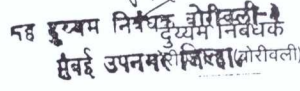 सह दुय्यम निबंधक बोरीवली-२
दुय्यम निबंधक
मुंबई उपनगर जिल्हा (बोरीवली)